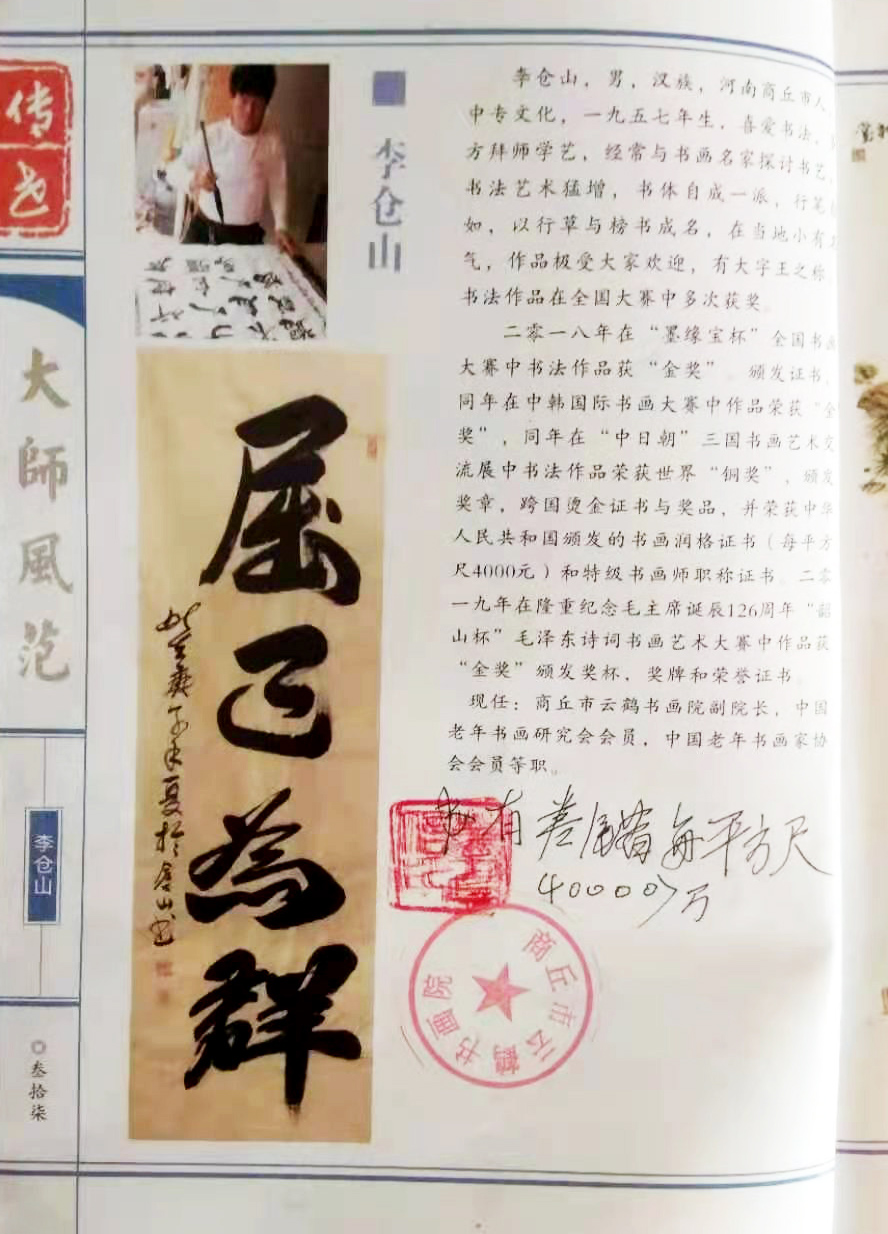 传世
大師風范
李仓山
叁拾柒
李仓山
李仓山，男，汉族，河南商丘市人，
中专文化，一九五七年生，喜爱书法，
方拜师学艺，经常与书画名家探讨书艺，
书法艺术猛增，书体自成一派，行笔
如，以行草与榜书成名，在当地小有
气，作品极受大家欢迎，有大字王之称，
书法作品在全国大赛中多次获奖。
二零一八年在“墨缘宝杯”全国书画
大赛中书法作品获“金奖”。颁发证书，
同年在中韩国际书画大赛中作品荣获“金
奖”，同年在“中日朝”三国书画艺术交
流展中书法作品荣获世界“铜奖”，颁发
奖章，跨国烫金证书与奖品，并荣获中华
人民共和国颁发的书画润格证书（每平方
尺4000元）和特级书画师职称证书。二零
一九年在隆重纪念毛主席诞辰126周年“韶
山杯”毛泽东诗词书画艺术大赛中作品获
“金奖”颁发奖杯，奖牌和荣誉证书。
现任：商丘市云鹤书画院副院长，中国
老年书画研究会会员，中国老年书画家协
会会员等职。
屈己为群
庚子年夏于仓山书
有 每平方尺
40000万
商丘市云鹤书画院